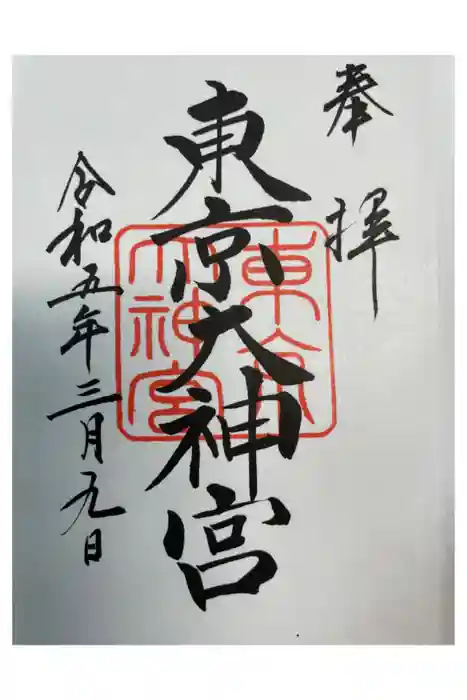 奉拝
東京大神宮
東京
大神宮
令和五年三月九日